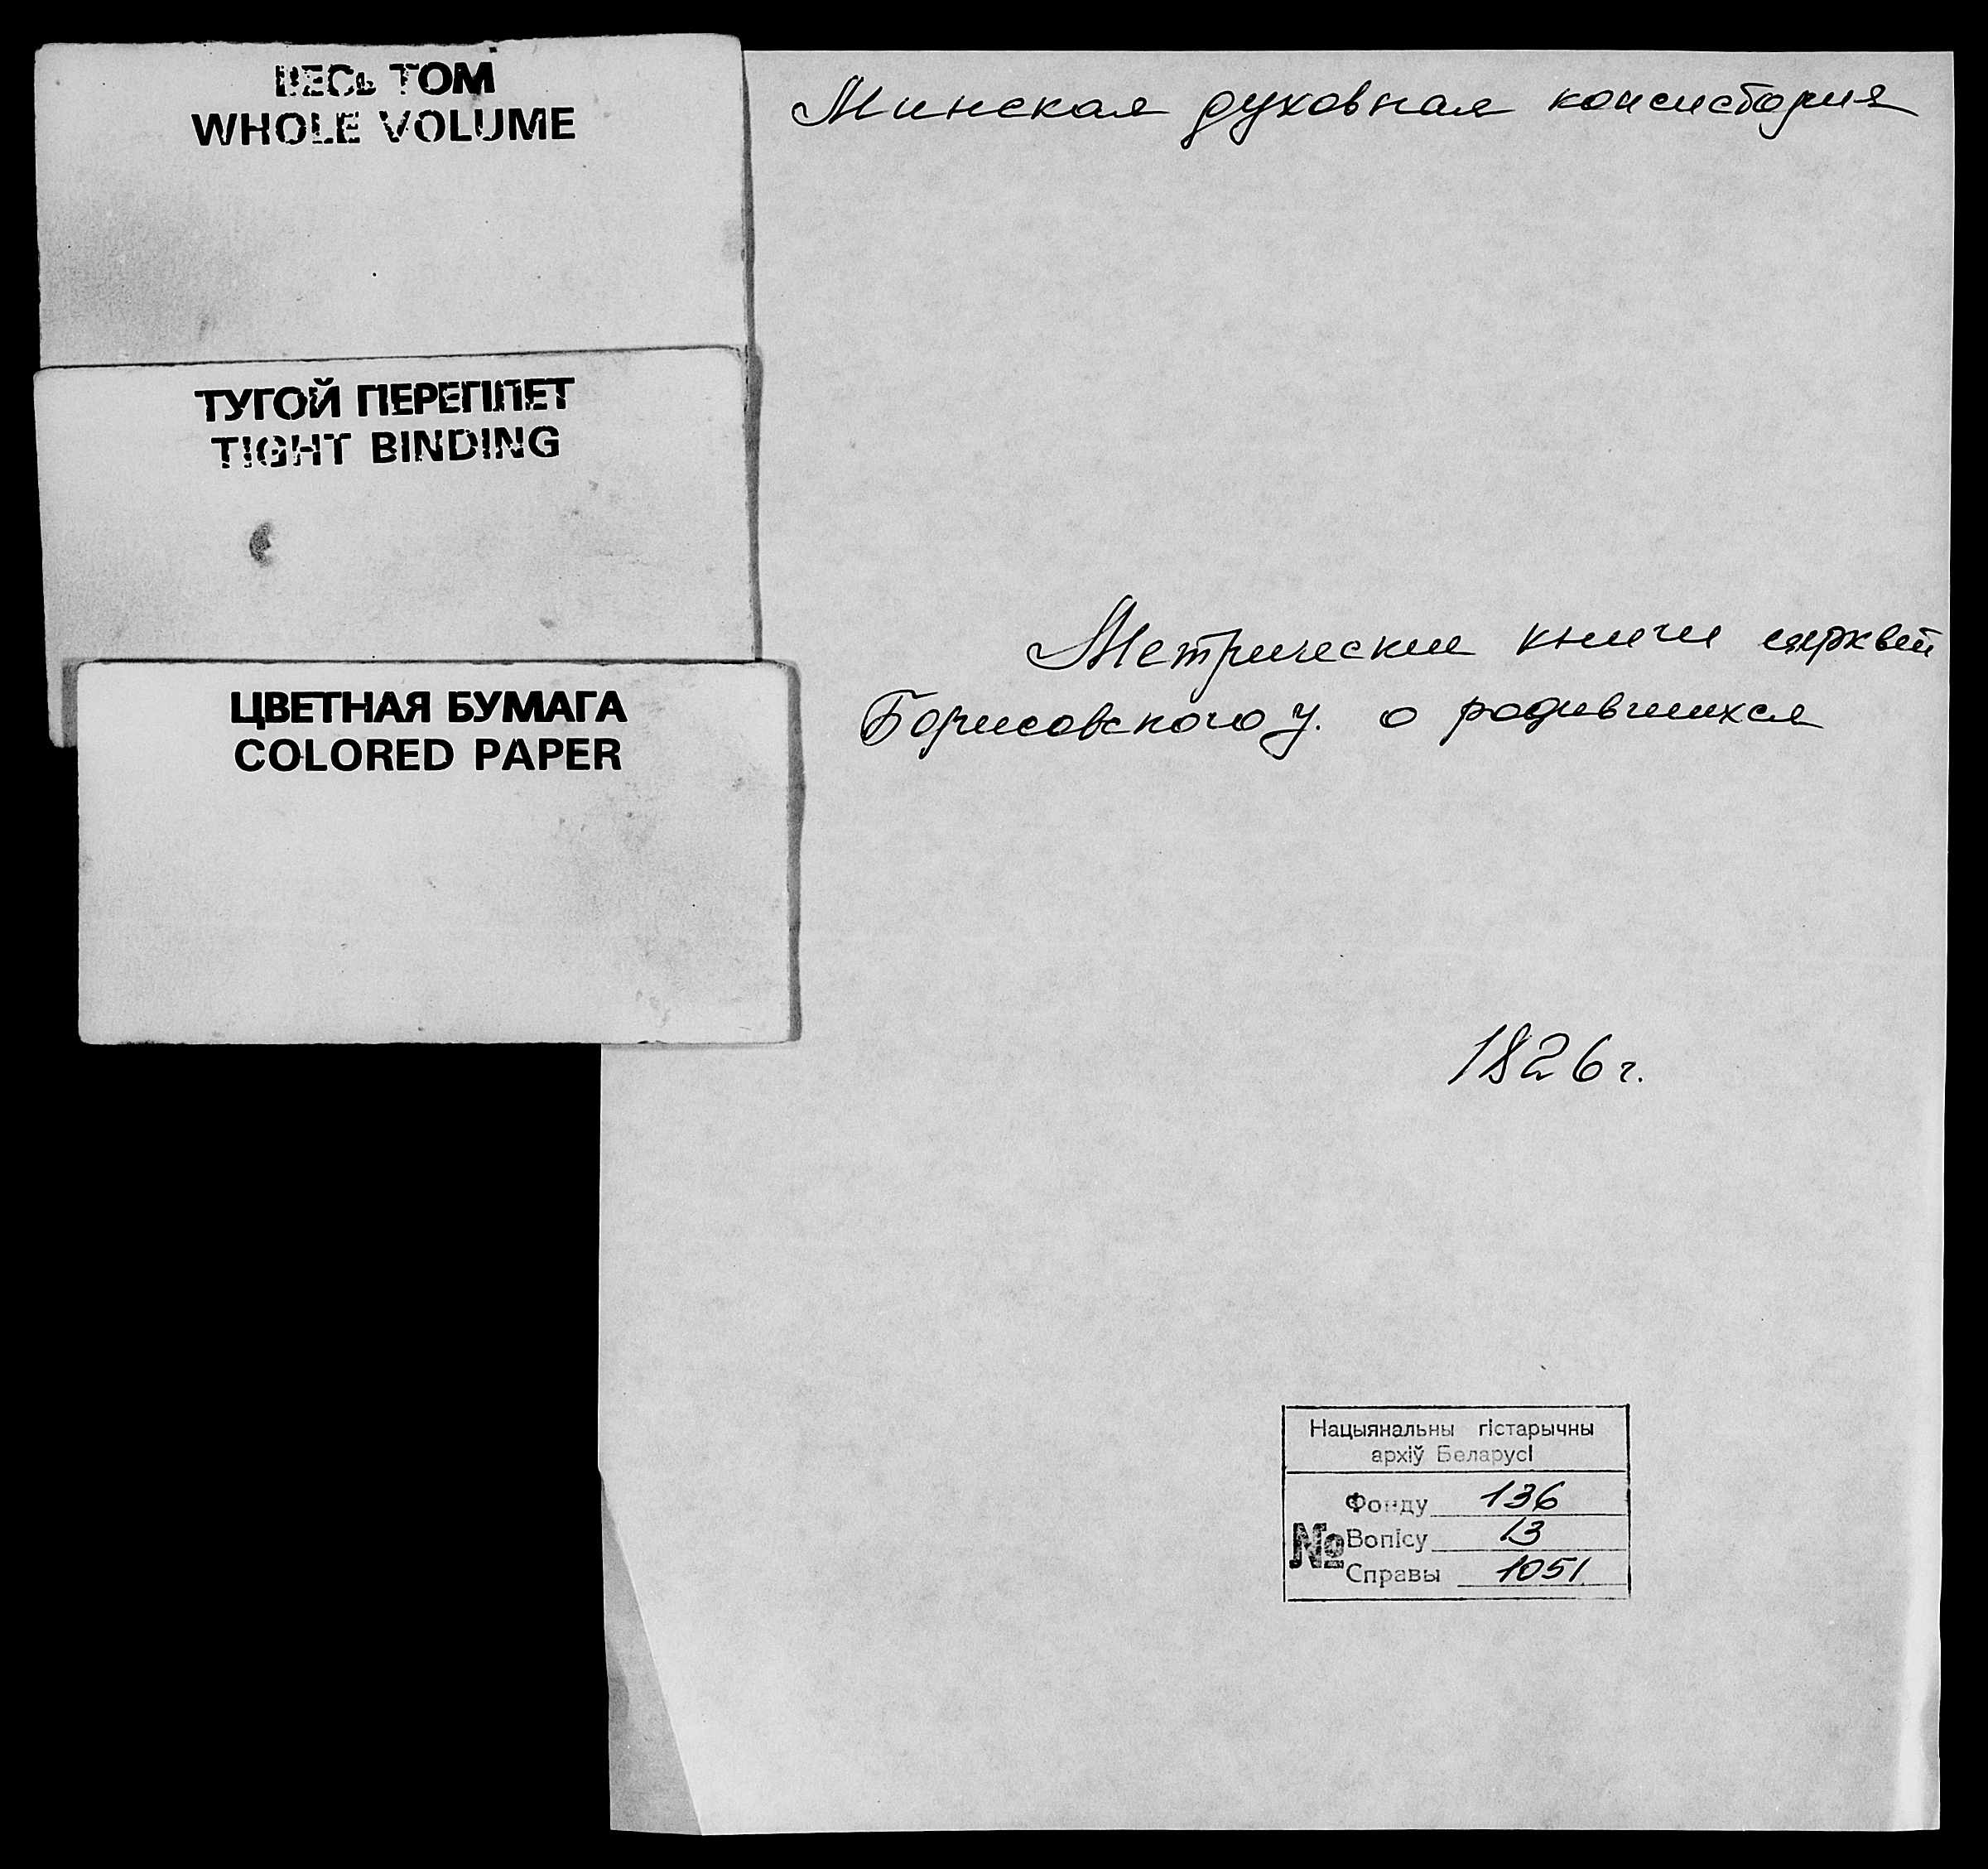 ВЕСЬ ТОМ
WHOLE VOLUME
ТУГОЙ ПЕРЕПЛЕТ
TIGHT BINDING
ЦВЕТНАЯ БУМАГА
COLORED PAPER
Минская духовная консистория
Метрические книги церквей
Борисовского у. о родившихся
1826 г.
Нацыянальны гістарычны
архіў Беларусі
№
Фонду 136
Вопісу 13
Справы 1051